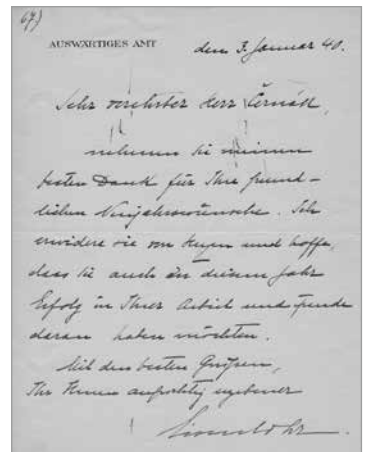 67)
AUSWÄRTIGES AMT
den 3. Januar 40.
Sehr verehrter Herr Černák,
nehmen Sie meinen
besten Dank für Ihre freund-
lichen Neujahrswünsche. Ich
erwidere sie von Herzen und hoffe,
dass Sie auch in diesem Jahr
Erfolg in Ihrer Arbeit und Freude
daran haben möchten.
Mit den besten Grüßen,
Ihr Ihnen aufrichtig ergebener